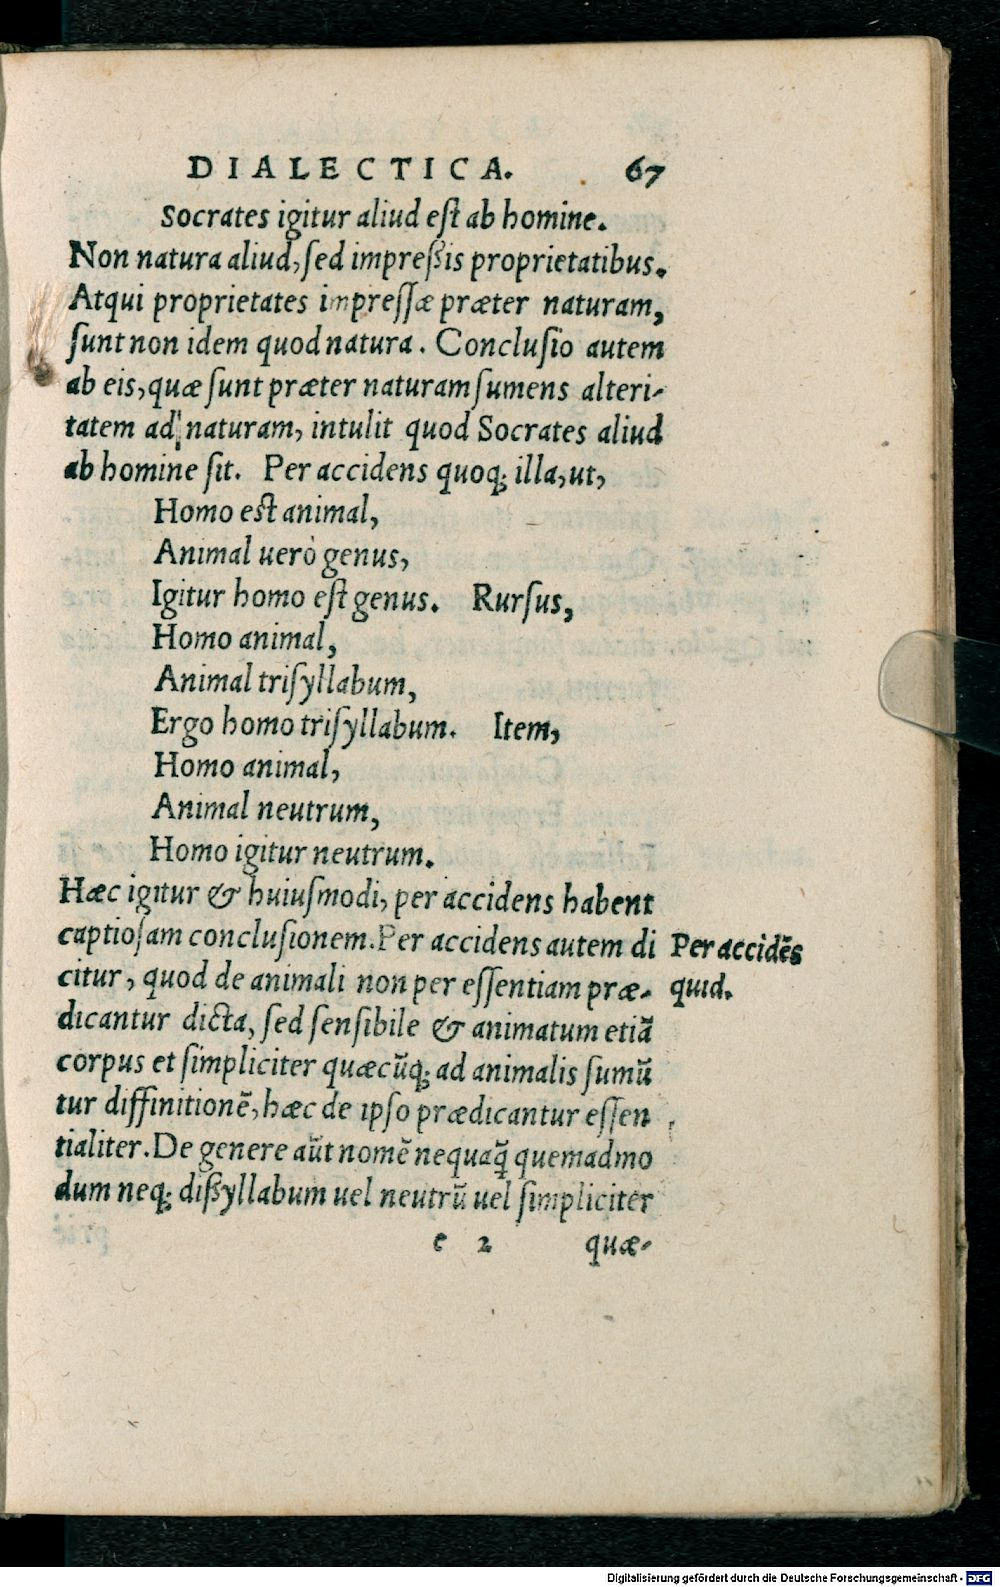 DIALECTICA. 67
Socrates igitur aliud eſt ab homine.
Non natura aliud, ſed impreſsis proprietatibus.
Atqui proprietates impreſſæ præter naturam,
ſunt non idem quod natura. Concluſio autem
ab eis, quæ ſunt præter naturam ſumens alteri-
tatem ad naturam, intulit quod Socrates aliud
ab homine ſit. Per accidens quoq; illa, ut,
Homo eſt animal,
Animal uerò genus,
Igitur homo eſt genus. Rurſus,
Homo animal,
Animal triſyllabum,
Ergo homo triſyllabum. Item,
Homo animal,
Animal neutrum,
Homo igitur neutrum.
Hæc igitur & huiuſmodi, per accidens habent
captioſam concluſionem. Per accidens autem di
citur, quod de animali non per eſſentiam præ-
dicantur dicta, ſed ſenſibile & animatum etiã
corpus et ſimpliciter quæcũq; ad animalis ſumũ
tur diffinitionẽ, hæc de ipſo prædicantur eſſen
tialiter. De genere aũt nomẽ nequaq̃ quemadmo
dum neq; diſsyllabum uel neutrũ uel ſimpliciter
Per accidẽs
quid.
e 2 quæ-
Digitalisierung gefördert durch die Deutsche Forschungsgemeinschaft - DFG